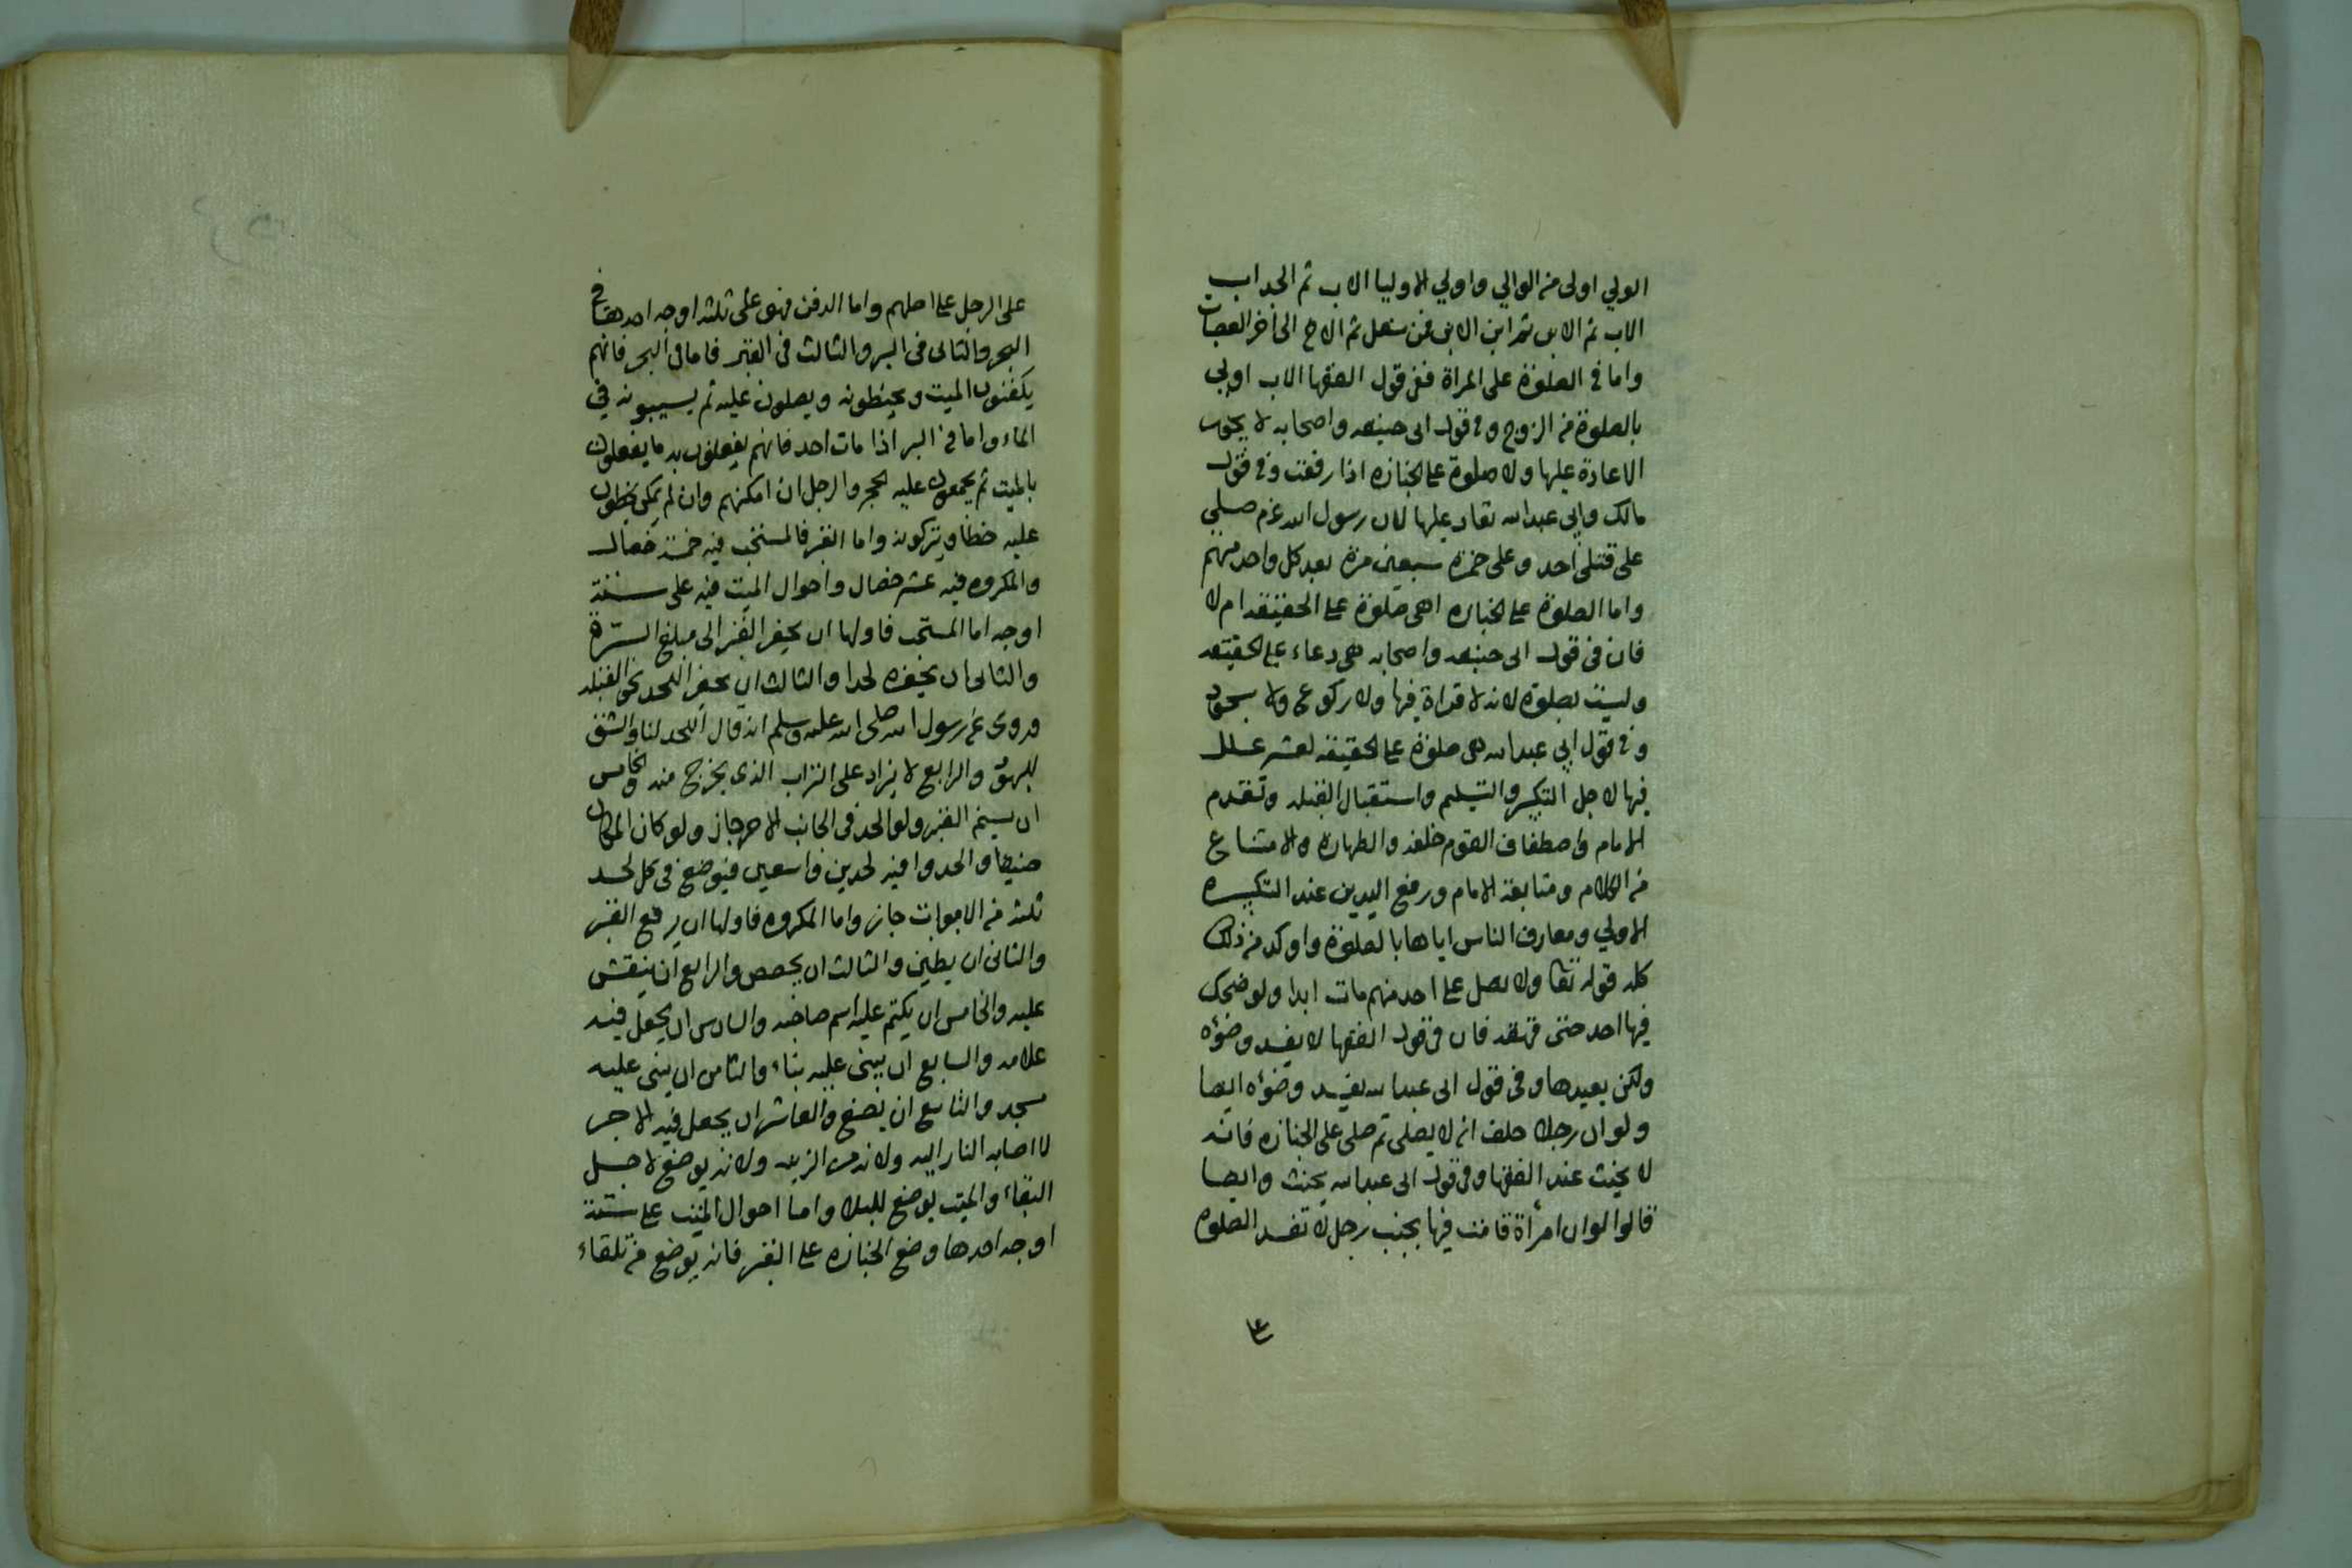 الولي اولى من الوالي واولي الاوليا الاب ثم الجد اب
الاب ثم الابن ثم ابن الابن فمن سفل ثم الاخ الى أخر العصبات
واما في الصلوة على المراة ففي قول الفقها الاب اولي
بالصلوة من الزوج وفي قول ابى حنيفه واصحابه لا يجوز
الاعادة عليها ولا صلوة على الجنازه اذا رفعت وفي قول
مالك وابي عبد الله تعاد عليها لان رسول الله عم صلي
على قتلى أحد وعلى حمزة سبعين مرة بعد كل واحد منهم
واما الصلوة على الجنازه اهى صلوة على الحقيقه ام لا
فان فى قول ابى حنيفه واصحابه هي دعاء على الحقيقه
وليست بصلوة لانه لا قراة فيها ولا ركوع ولا سجود
وفي قول ابي عبد الله هى صلوة على الحقيقه لعشر علل
فيها لاجل التكبير والتسليم واستقبال القبله وتقدم
الامام واصطفاف القوم خلفه والطهارة والامتناع
من الكلام ومتابعة الامام ورفع اليدين عند التكبيره
الاولي ومعارف الناس اياها بالصلوة واوكد من ذلك
كله قوله تعا ولا تصل على احد منهم مات ابدا ولو ضحك
فيها احد حتى قهقه فان في قول الفقها لا يفسد وضؤه
ولكن يعيدها وفى قول ابى عبد الله يفسد وضؤه ايضا
ولو ان رجلا حلف انه لا يصلى ثم صلى على الجنازه فانه
لا يحنث عند الفقها وفي قول ابى عبد الله يحنث وايضا
قالوا لو ان امرأة قامت فيها بجنب رجل لا تفسد الصلوه
على الرجل على اصلهم واما الدفن فهو على ثلثه اوجه احدها في
البحر والثانى فى البر والثالث فى القبر فاما فى البحر فانهم
يكفنون الميت ويحنطونه ويصلون عليه ثم يسيبونه في
الماء واما في البر اذا مات احد فانهم يفعلون به ما يفعلون
بالميت ثم يجمعون عليه الحجر والرمل ان امكنهم وان لم يمكن يخطون
عليه خطا ويتركونه واما القبر فالمستحب فيه خمسة خصال
والمكروه فيه عشر خصال واحوال الميت فيه على ستة
اوجه اما المستحب فاولها ان يحفر القبر الى مبلغ السرة
والثانى ان يحفره لحدا والثالث ان يحفر اللحد نحو القبله
وروى عن رسول الله صلى الله عليه وسلم انه قال اللحد لنا والشق
لليهود والرابع لا يزاد على التراب الذى يخرج منه والخامس
ان يسنم القبر ولو الحد فى الجانب الاخر جاز ولو كان المكان
ضيقا والحدوا فيه لحدين واسعين فيوضع فى كل لحد
ثلثه من الاموات جاز واما المكروه فاولها ان يرفع القبر
والثانى ان يطين والثالث ان يجصص والرابع ان ينقش
عليه والخامس ان يكتب عليه اسم صاحبه والسادس ان يجعل فيه
علامه والسابع ان يبنى عليه بناء والثامن ان يبنى عليه
مسجد والتاسع ان يصنع والعاشر ان يجعل فيه الاجر
لا اصابه النار اليه ولانه من الزينه ولانه يوضع لاجل
البقاء والميت يوضع للبلا واما احوال الميت على ستة
اوجه احدها وضع الجنازه على القبر فانه يوضع من تلقاء